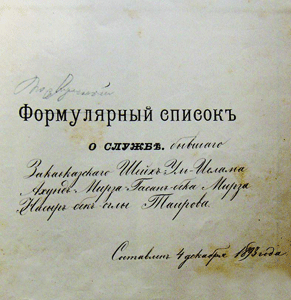 Формулярный списокъ
о службѣ. бывшаго
Закавказскаго Шейхъ Ул-Ислама
Ахундъ Мирза Гасанъ Мирза
Насиръ Таирова
Составленъ 4 декабря 1893 года